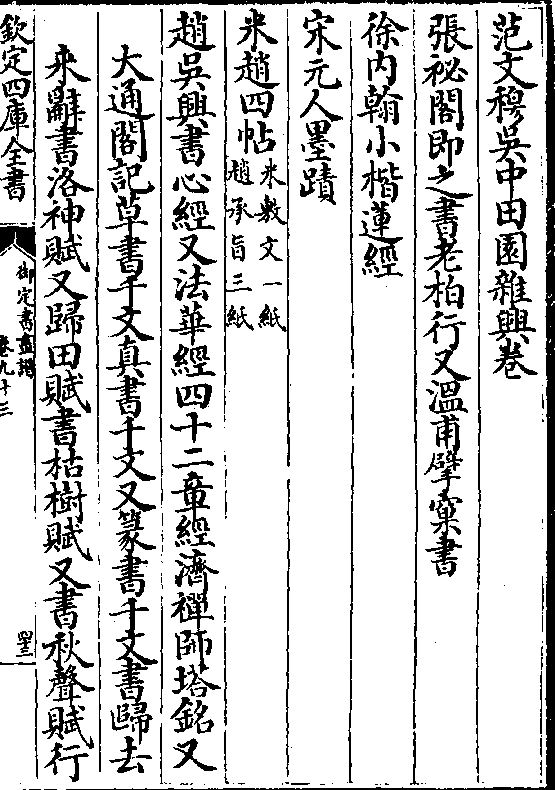 范文穆吳中田園雜興卷
張祕閣即之書老柏行又溫甫擘窠書
徐内翰小楷蓮經
宋元人墨蹟
米趙四帖米敷文一紙趙承旨三紙
趙吳興書心經又法華經四十二章經濟禪師塔銘又
大通閣記草書千文真書千文又篆書千文書歸去
來辭書洛神賦又歸田賦書枯樹賦又書秋聲賦行
欽定四庫全書
御定書畫譜
卷九十三